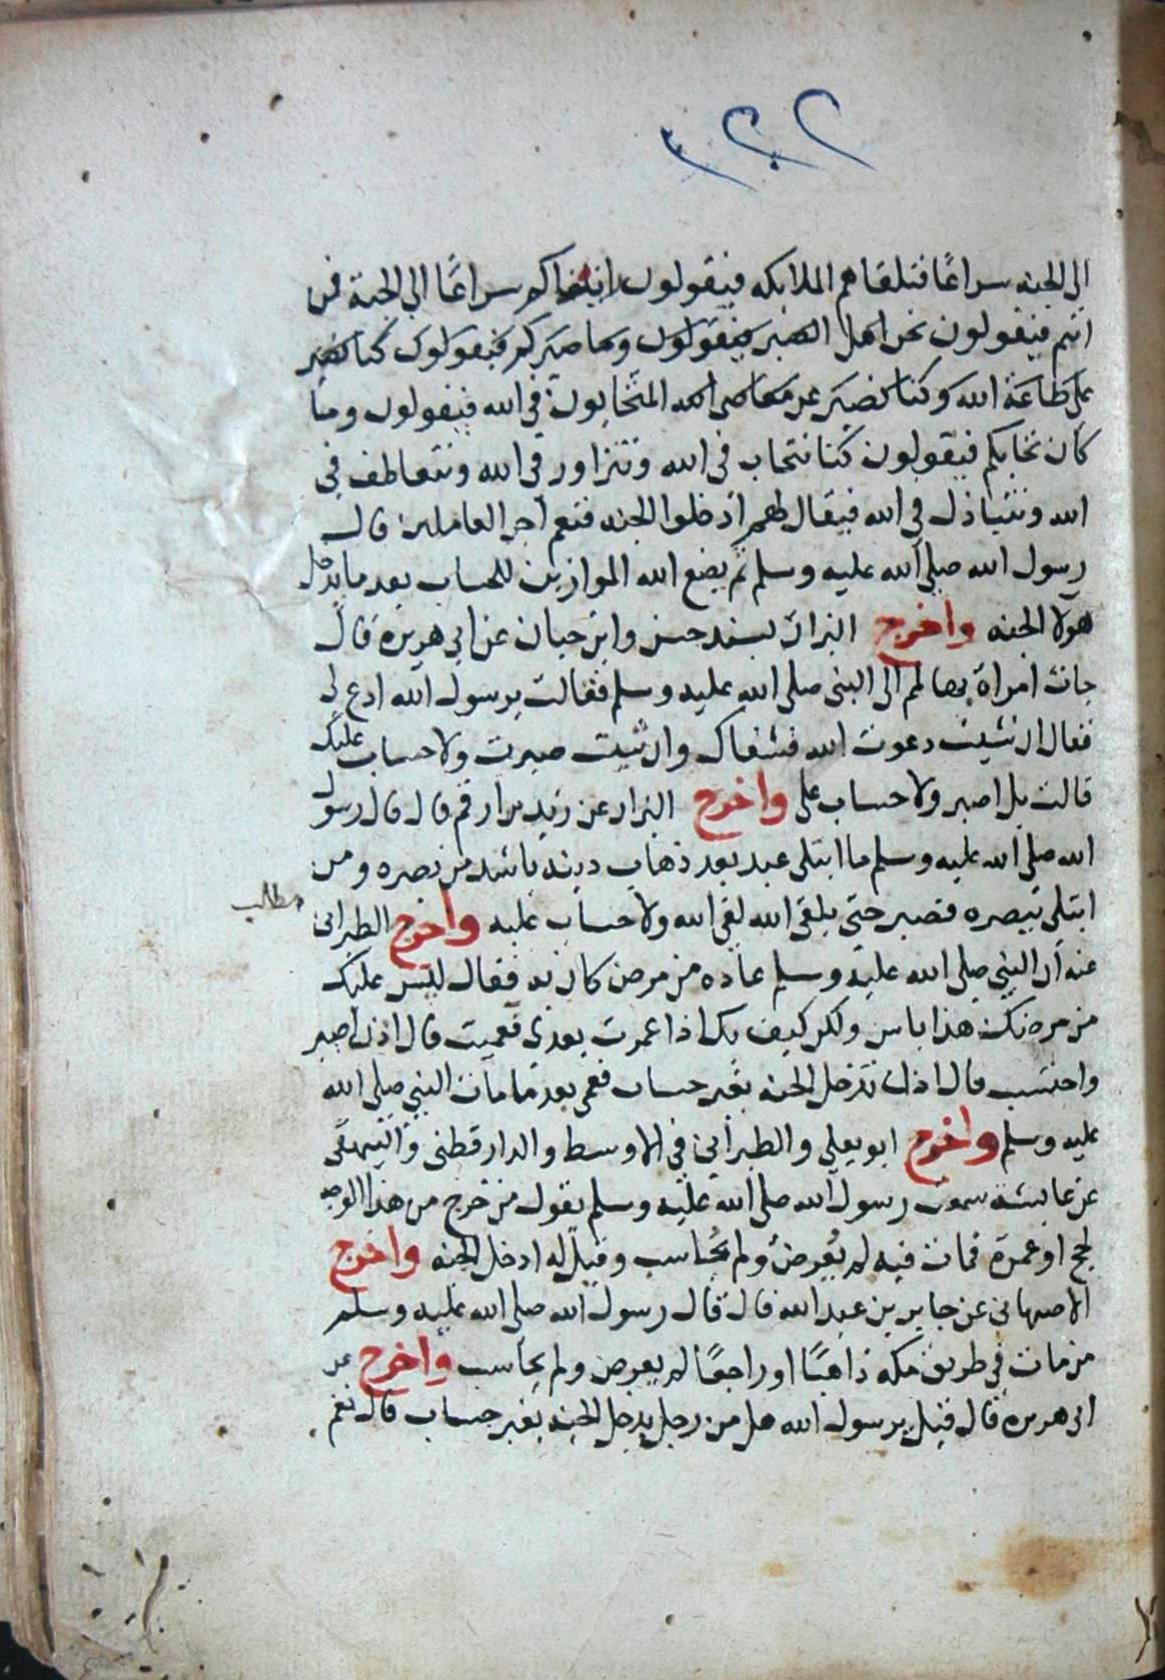 الى الجنه سراعًا فتلقاهم الملايكه فيقولون انا نراكم سراعًا الى الجنة فمن
انتم فيقولون نحن اهل الصبر فيقولون وما صبركم فيقولون كنا نصبر
على طاعة الله وكنا نصبر عن معاصى الله المتحابون في الله فيقولون وما
كان تحابكم فيقولون كنا نتحاب في الله ونتزاور في الله ونتعاطف في
الله ونتباذل في الله فيقال لهم ادخلوا الجنه فنعم اجر العاملين قال
رسول الله صلى الله عليه وسلم ثم يضع الله الموازين للحساب بعد ما يدخل
هولا الجنه واخرج البزار بسند حسن وابن حبان عن ابي هريرة قال
جات امراة بها لمم الى النبى صلى الله عليه وسلم فقالت يرسول الله ادع لي
فقال ان شيت دعوت الله فشفاك وان شيت صبرت ولا حساب عليك
قالت بل اصبر ولا حساب على واخرج البزار عن زيد بن ارقم قال قال رسول
الله صلى الله عليه وسلم ما ابتلى عبد بعد ذهاب دينه باشد من بصره ومن
ابتلى ببصره فصبر حتى يلقى الله لقى الله ولا حساب عليه واخرج الطبرانى
مطالب
عنه ان النبى صلى الله عليه وسلم عاده من مرض كان به فقال ليس عليك
من مرضك هذا باس ولكن كيف بك اذا عمرت بعدى فعميت قال اذن اصبر
واحتسب قال اذن تدخل الجنه بغير حساب فعمى بعد ما مات النبي صلى الله
عليه وسلم واخرج ابو يعلى والطبرانى في الاوسط والدارقطنى والبيهقى
عن عايشة سمعت رسول الله صلى الله عليه وسلم يقول من خرج من هذا الوجه
لحج او عمرة فمات فيه لم يعرض ولم يحاسب وقيل له ادخل الجنه واخرج
الاصبهانى عن جابر بن عبد الله قال قال رسول الله صلى الله عليه وسلم
من مات في طريق مكه ذاهبًا او راجعًا لم يعرض ولم يحاسب واخرج عن
ابى هريرة قال قيل يرسول الله هل من رجل يدخل الجنه بغير حساب قال نعم